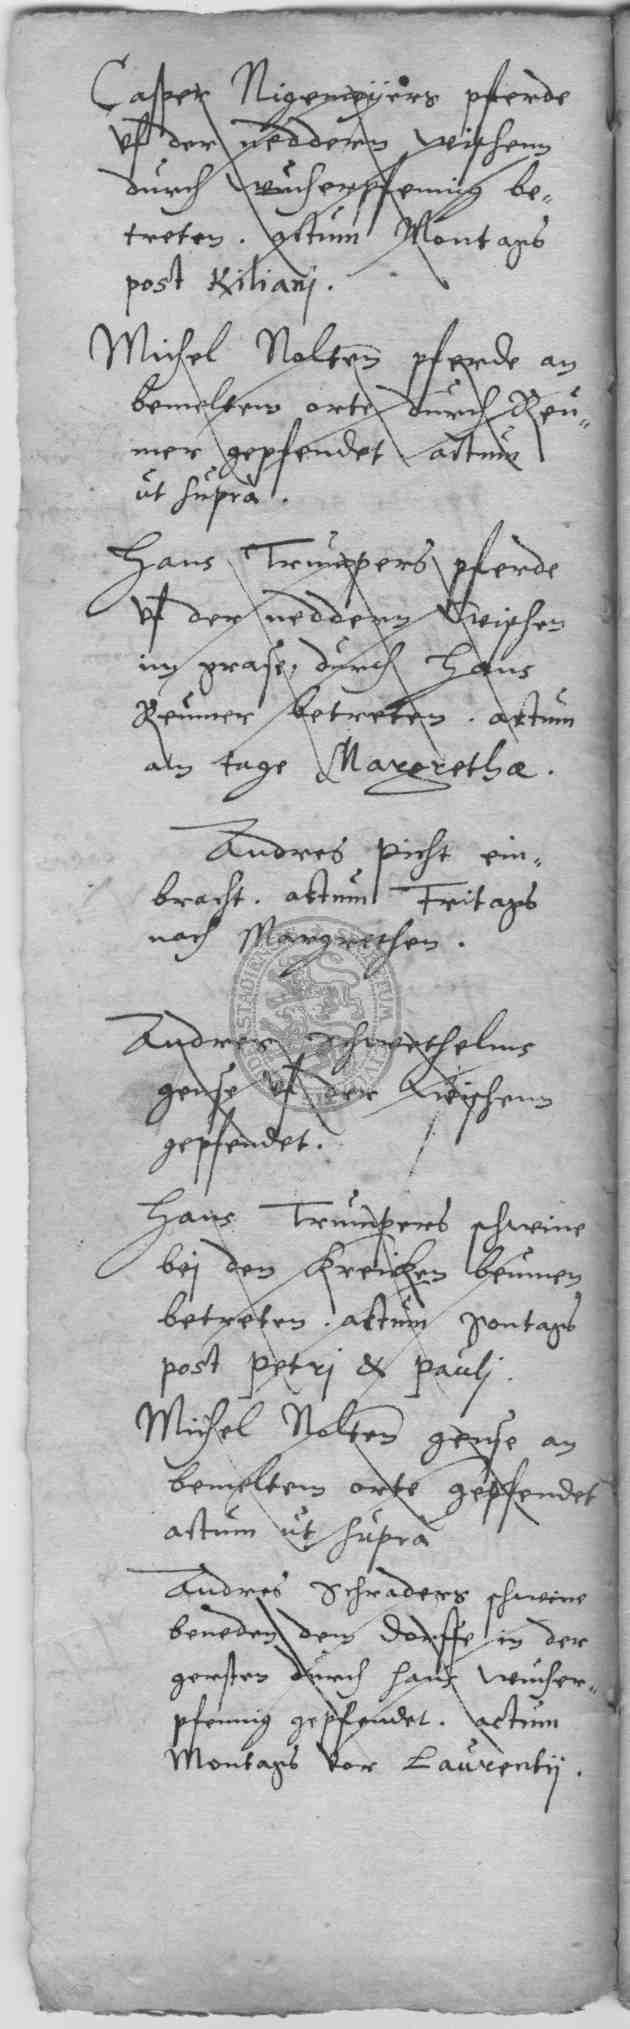 Casper Nigemeijers pferde
uf der neddern wischenn
durch wucherpfennig be-
treten. actum Montags
post Kilianj.
Michel Nolten pferde an
bemeltem orte durch Reu-
mer gepfendet actum
ut supra.
Hans Trumpers pferde
uf der neddern wischen
im grase, durch Hans
Reumer betreten. actum
am tage Margrethæ.
Andres picht ein-
bracht. actum Fritags
nach Margrethen.
Andres Schwethelms
gense uf der wischenn
gepfendet.
Hans Trumpers schweine
bej den Kreicken beumen
betreten. actum Sontags
post petrj & paulj.
Michel Nolten gense an
bemeltem orte gepfendet
actum ut supra
Andres Schraders schweine
beneden dem dorffe in der
gersten durch hans wucher-
pfennig gepfendet. actum
Montags vor Laurentij.